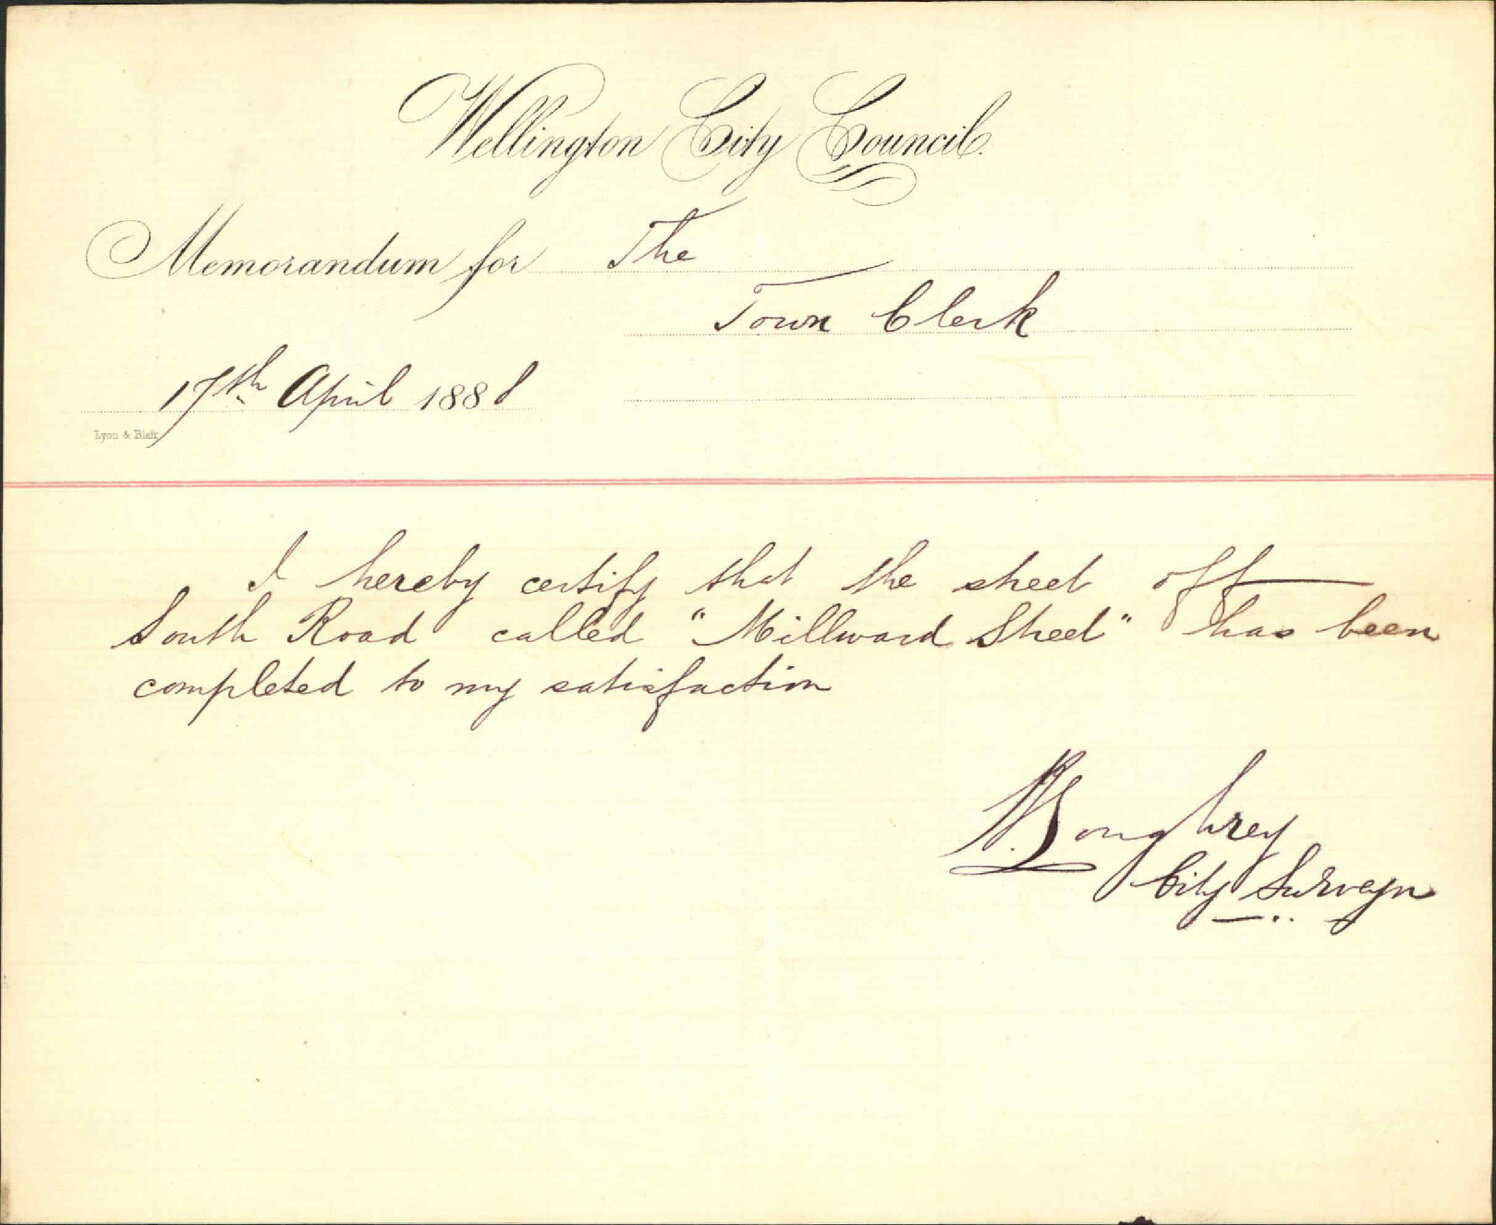 Wellington City Council.
Memorandum for The
Town Clerk
17th April 1888
Lyon & Blair
I hereby certify that the street off
South Road called "Millward Street" has been
completed to my satisfaction
Loughrey
City Surveyor